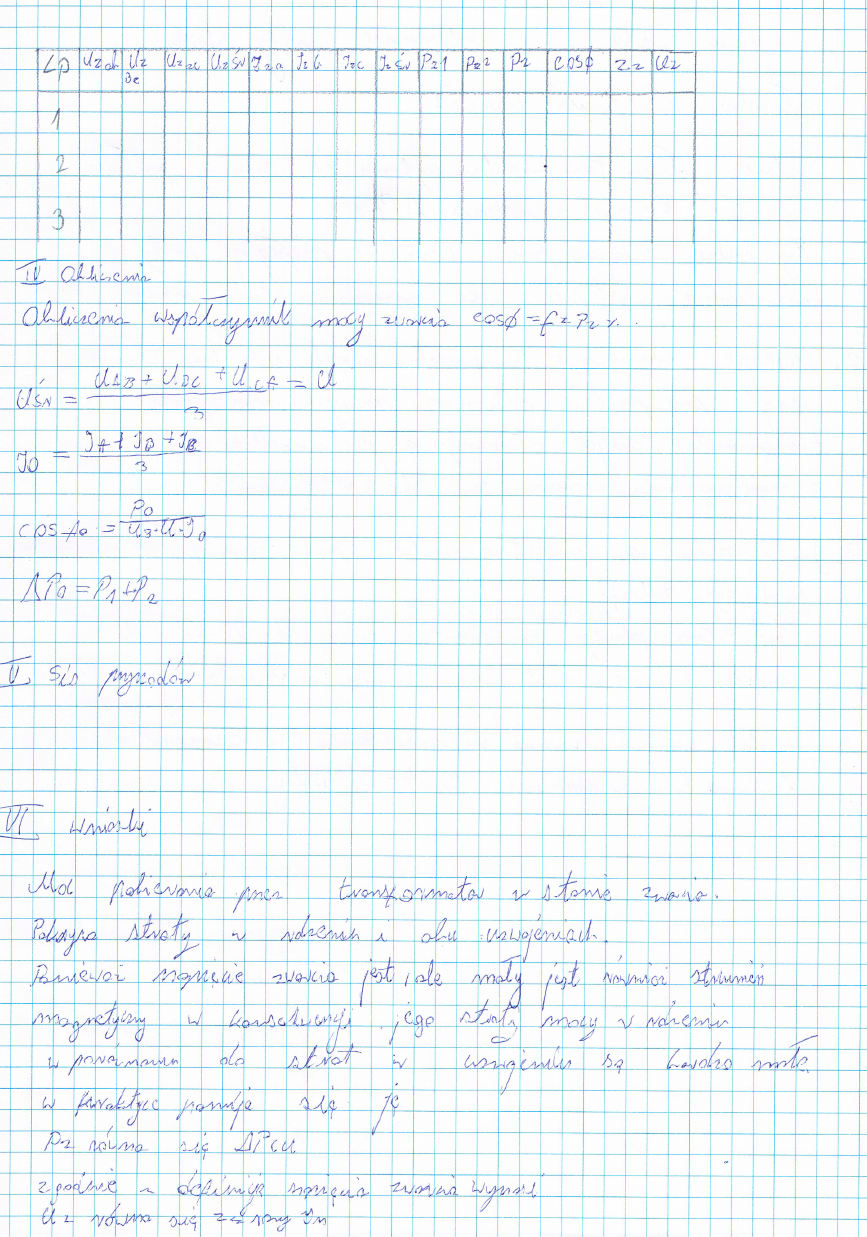 Lp Uzab Uz Bc Uzac Uzśr Jza Jzb Jzc Jzśr Pz1 Pz2 Pz cosϕ Zz Uz
1
2
3
IV Obliczenia
Obliczenia współczynnik mocy zwarcia cosϕ =
Uśr = UAB + UBC + UCA / 3 = U
J0 = JA + JB + JB / 3
cosϕ0 = P0 / U3·U·J0
ΔP0 = P1 + P2
V Sis przyrządów
VI wnioski
Moc pobierania przez transformator w stanie zwarcia.
Pokrywa straty w rdzeniu i obu uzwojeniach.
Ponieważ napięcie zwarcia jest, ale mały jest również strumień
magnetyczny w konsekwencji jego straty mocy w rdzeniu
w porównaniu do strat w uzwojeniu są bardzo małe.
w praktyce pomija się je
Pz równa się ΔPcu
zgodnie z definicją napięcia zwarcia wynosi
Uz równa się Zz razy Jn